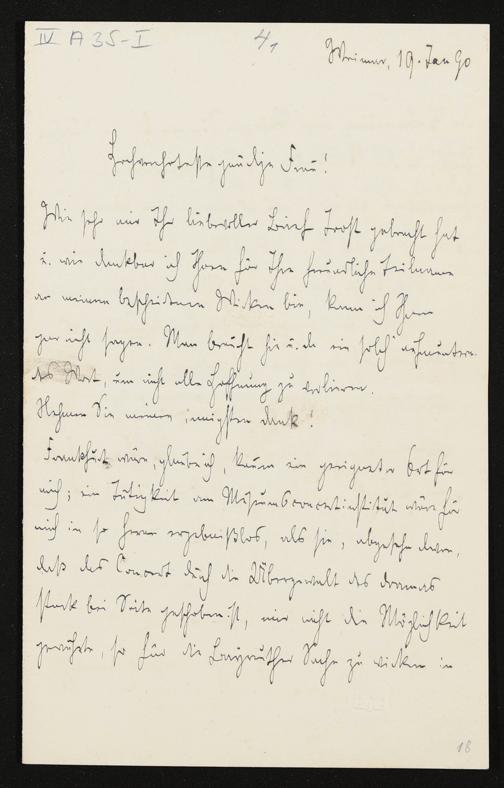 IV A 35-I
4,
Weimar, 19. Jan 90
Hochverehrteste gnädige Frau!
Wie sehr mir Ihr liebevoller Brief Trost gebracht hat
u. wie dankbar ich Ihnen für Ihre freundliche Teilname
an meinem bescheidenen Wirken bin, kann ich Ihnen
gar nicht sagen. Man braucht hie u. da ein solch' aufmuntern-
des Wort, um nicht alle Hoffnung zu verlieren.
Nehmen Sie meinen innigsten Dank!
Frankfurt wäre, glaube ich, kaum ein geeigneter Ort für
mich; ein Tätigkeit am Museumsconcertinstitut wäre für
mich in so fern ergebnißlos, als sie, abgesehn davon,
daß das Concert durch die Übergewalt des Dramas
stark bei Seite geschoben ist, mir nicht die Möglichkeit
gewährte, so für die Bayreuther Sache zu wirken in
18